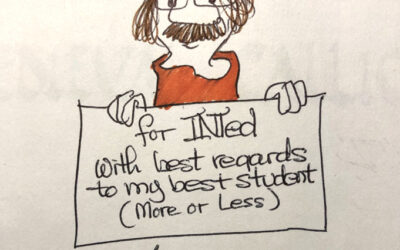 for INTed
with best regards
to my best student
(More or Less)